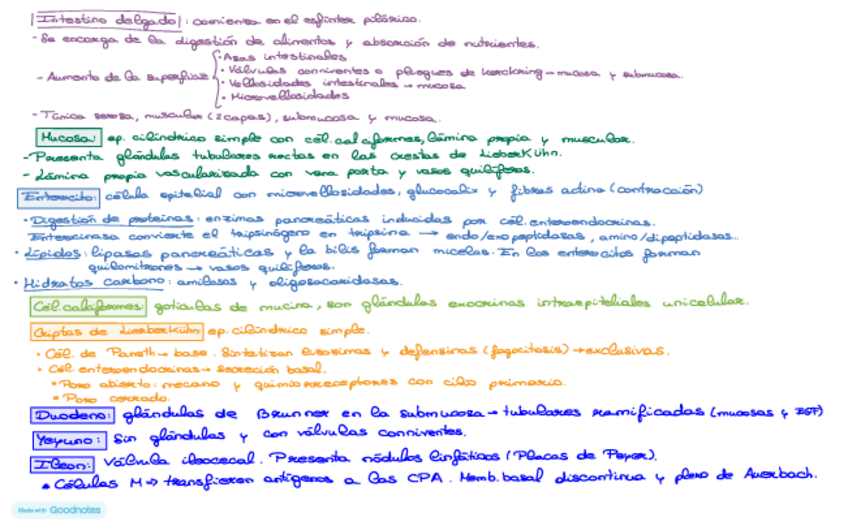 Intestino delgado: comienza en el esfínter pilórico.
- Se encarga de la digestión de alimentos y absorción de nutrientes.
- Aumento de la superficie
· Asas intestinales
· Válvulas conniventes o pliegues de Kerckring → mucosa y submucosa.
· Vellosidades intestinales → mucosa
· Microvellosidades
- Túnica serosa, muscular (2 capas), submucosa y mucosa.
Mucosa: ep. cilíndrico simple con cél. caliciformes, lámina propia y muscular.
- Presenta glándulas tubulares rectas en las crestas de Lieberkühn.
- Lámina propia vascularizada con vena porta y vasos quilíferos.
Enterocito: célula epitelial con microvellosidades, glucocalix y fibras actina (contracción)
· Digestión de proteínas: enzimas pancreáticas inducidas por cél. enteroendocrinas.
Enterocinasa convierte el tripsinógeno en tripsina → endo/exopeptidasas, amino/dipeptidasas...
· Lípidos: lipasas pancreáticas y la bilis forman micelas. En los enterocitos forman
quilomicrones → vasos quilíferos.
· Hidratos carbono: amilasas y oligosacaridasas.
Cél. caliciformes: gotículas de mucina, son glándulas exocrinas intraepiteliales unicelular.
Criptas de Lieberkühn: ep. cilíndrico simple.
· Cél. de Paneth → base. Sintetizan lisozimas y defensinas (fagocitosis) → exclusivas.
· Cél enteroendocrinas → secreción basal.
• Poro abierto: mecano y quimiorreceptores con cilio primario.
• Poro cerrado.
Duodeno: glándulas de Brunner en la submucosa → tubulares ramificadas (mucosas y EGF)
Yeyuno: Sin glándulas y con válvulas conniventes.
Ileon: Válvula ileocecal. Presenta nódulos linfáticos (Placas de Peyer).
• Células M → transfieren antígenos a las CPA. Memb. basal discontinua y plexo de Auerbach.
Made with Goodnotes